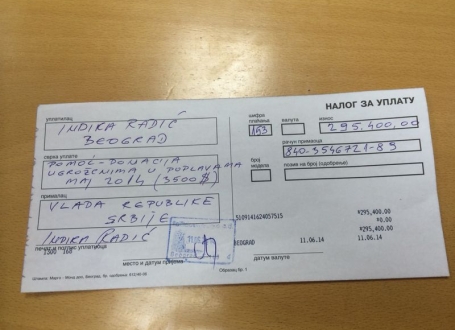 НАЛОГ ЗА УПЛАТУ
уплатилац
INDIKA RADIĆ
BEOGRAD
шифра плаћања
валута
износ
163
295.400,00
рачун примаоца
840-3546721-89
сврха уплате
POMOĆ-DONACIJA
UGROŽENIMA U POPLAVAMA
MAJ 2014 (3500$)
број модела
позив на број (одобрење)
прималац
VLADA REPUBLIKE
SRBIJE
INDIKA RADIĆ
печат и потпис уплатиоца
5109141624057515
¥295,400.00
¥0.00
¥295,400.00
BEOGRAD 11.06.14 11.06.14
место и датум пријема
датум валуте
Образац бр. 1